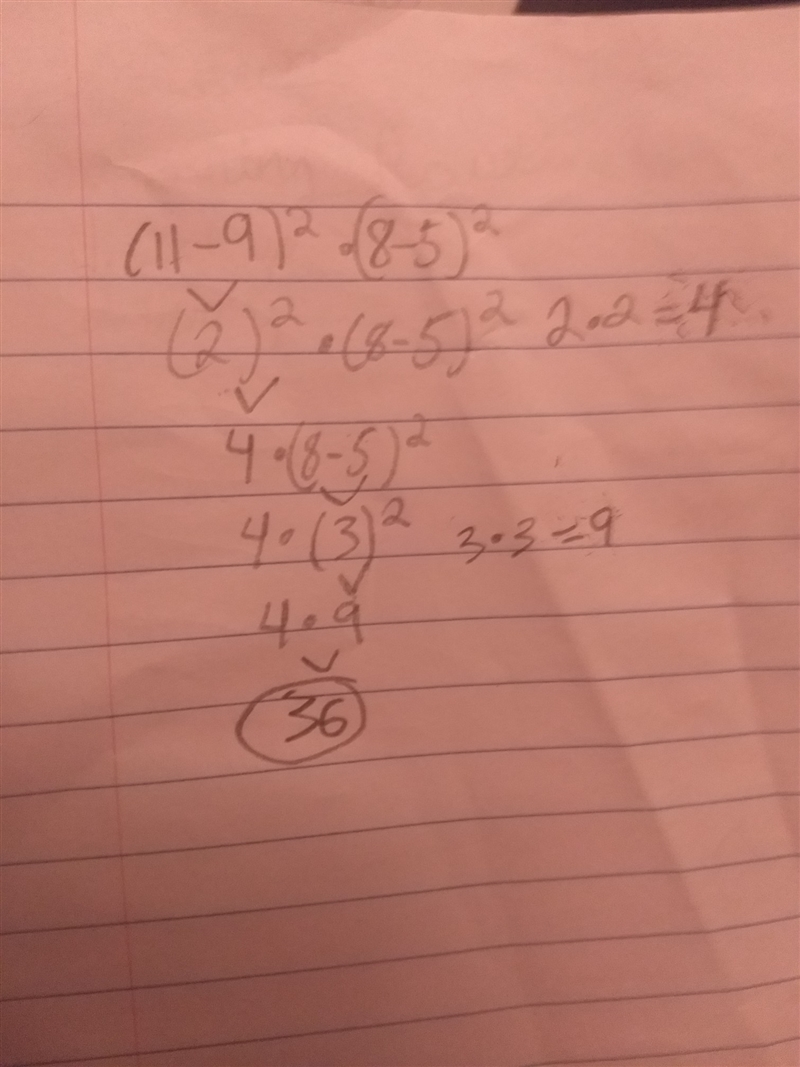 (11-9)² · (8-5)²
(2)² · (8-5)² 2·2=4
4·(8-5)²
4·(3)² 3·3=9
4·9
36